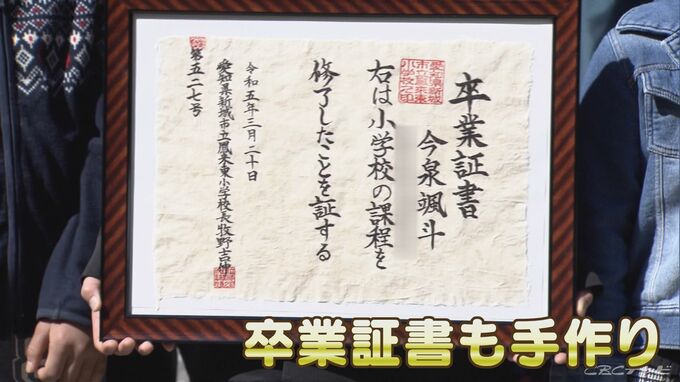 卒業証書
愛知県新城
市立鳳来東
小学校之印
今泉颯斗
右は小学校の課程を
修了したことを証する
令和五年三月二十日
愛知県新城市立鳳来東小学校長牧野吉伸
第五二七号
卒業証書も手作り
CBCテレビ